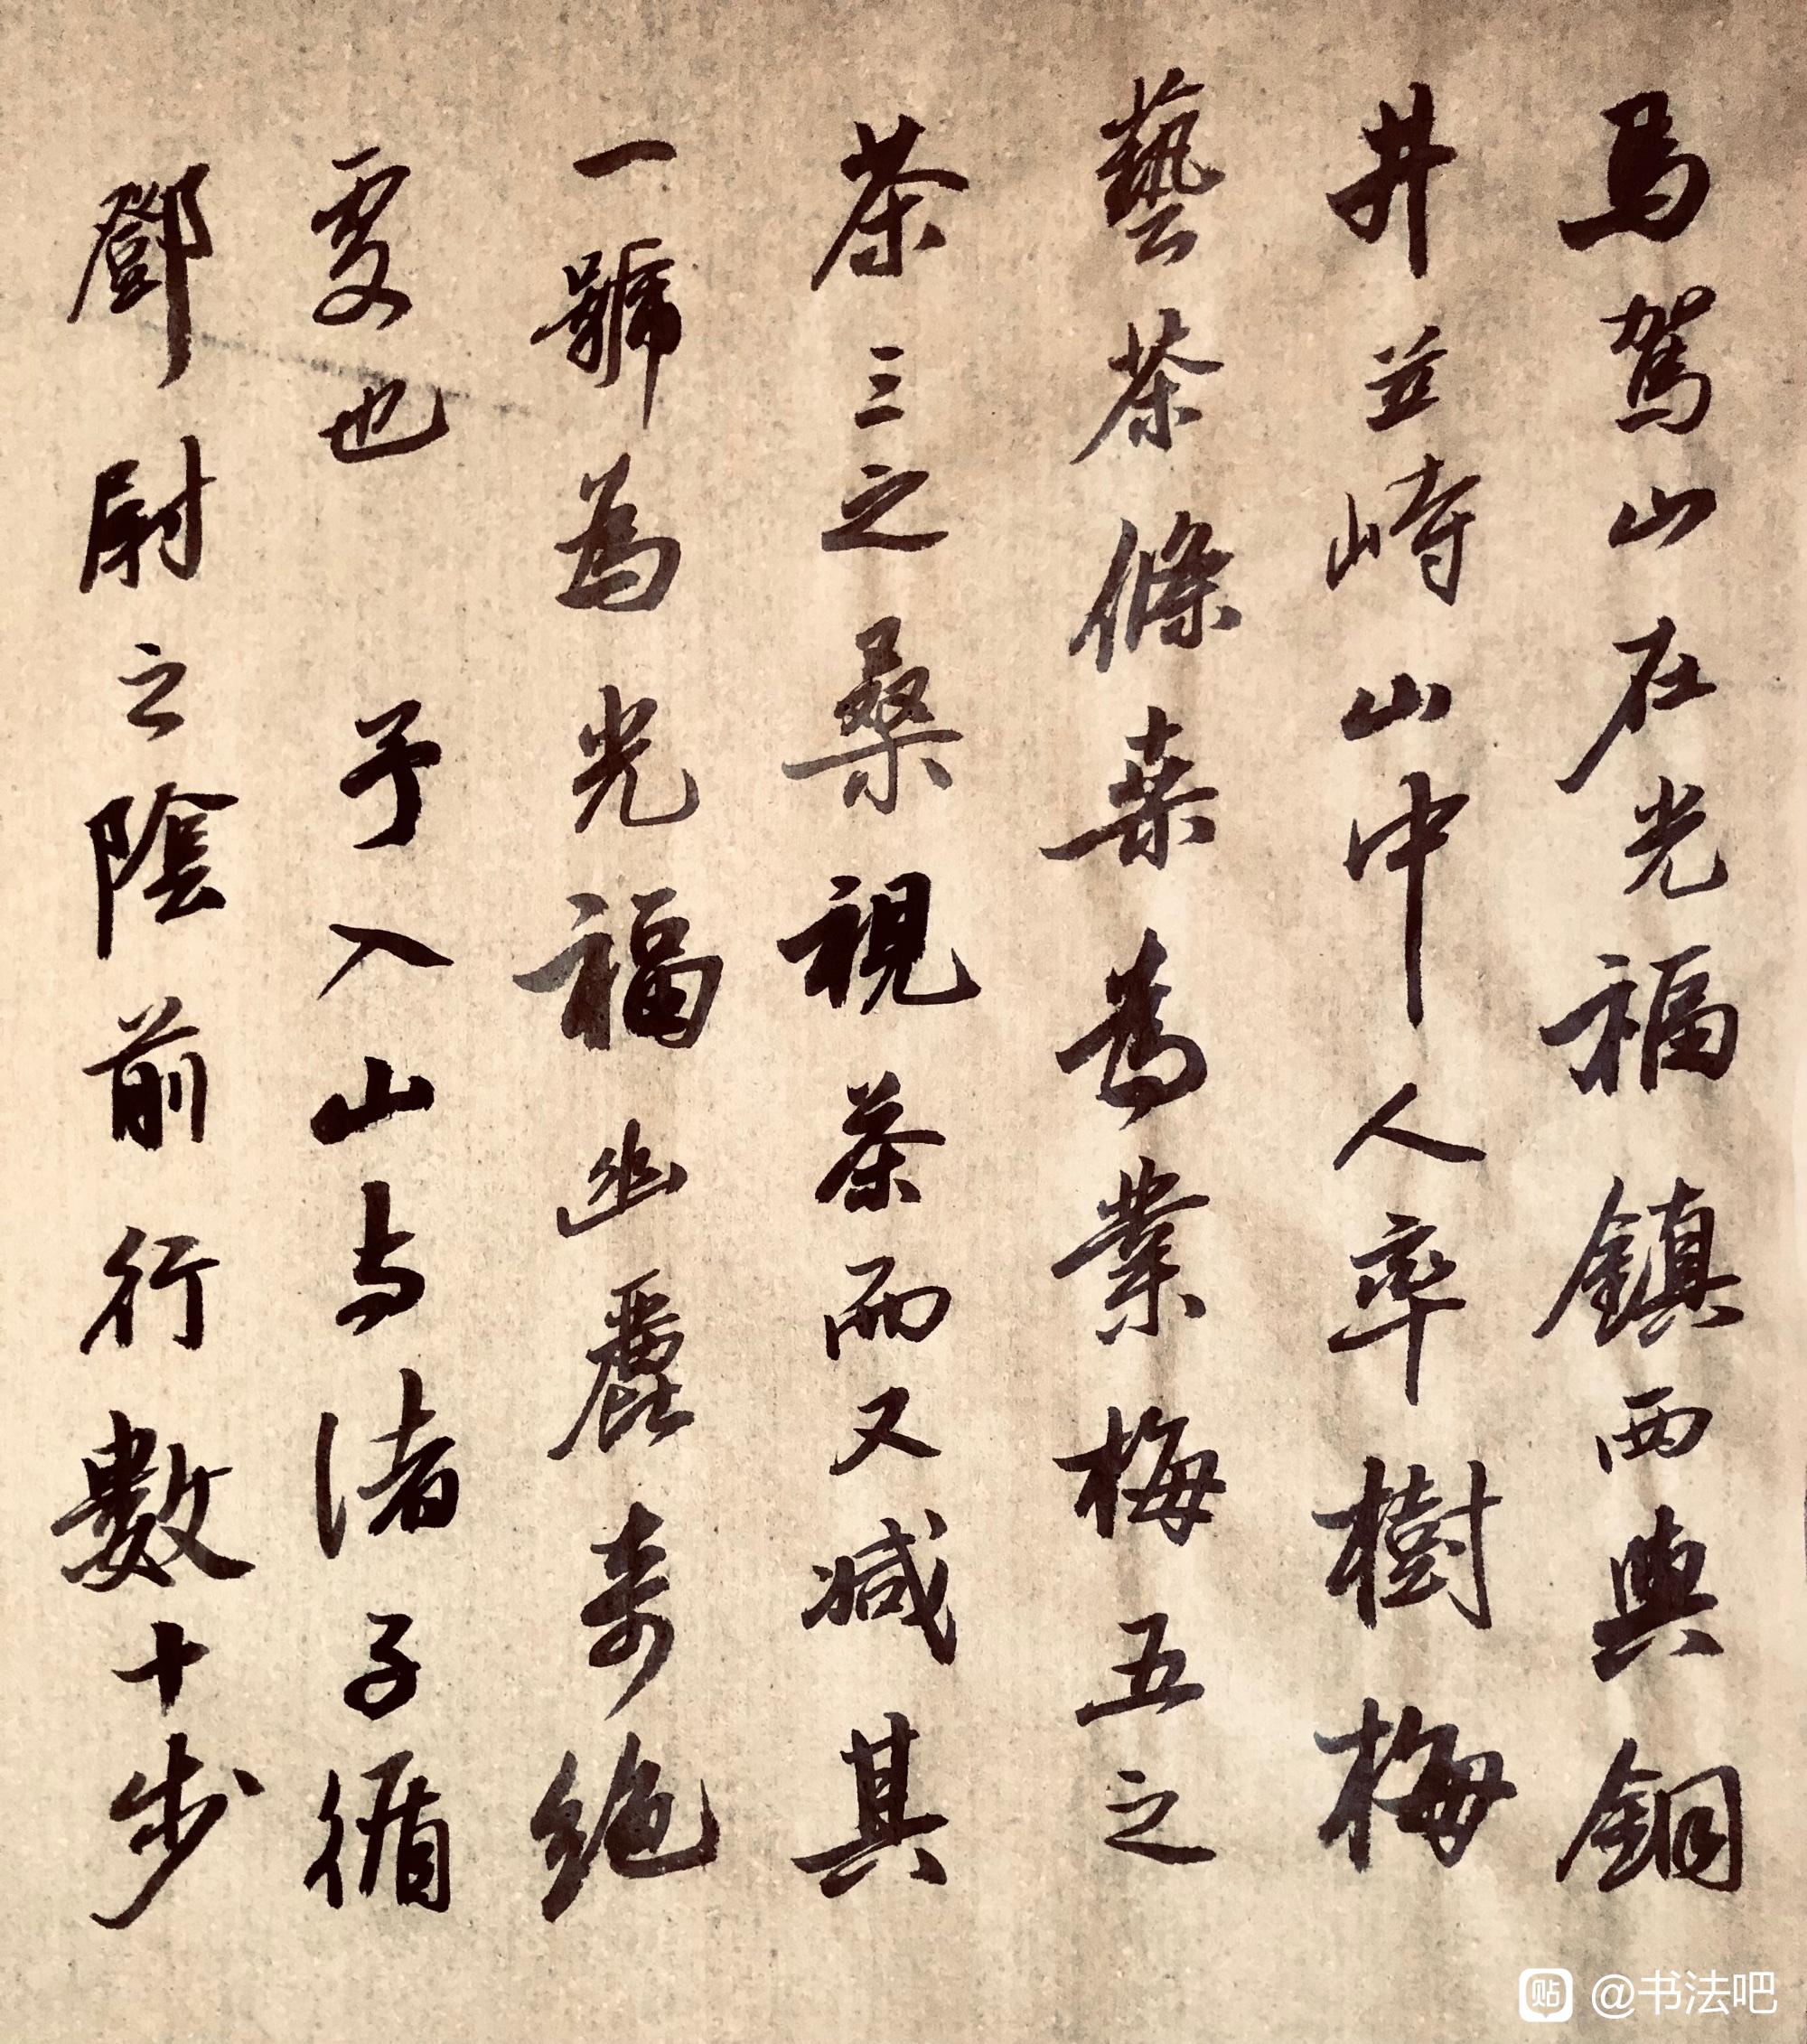 馬駕山在光福鎮西與銅
井並峙山中人率樹梅
藝茶條桑為業梅五之
茶三之桑視茶而又減其
一號為光福幽麗奇絕
處也 予入山与诸子循
鄧尉之陰前行數十步
@书法吧